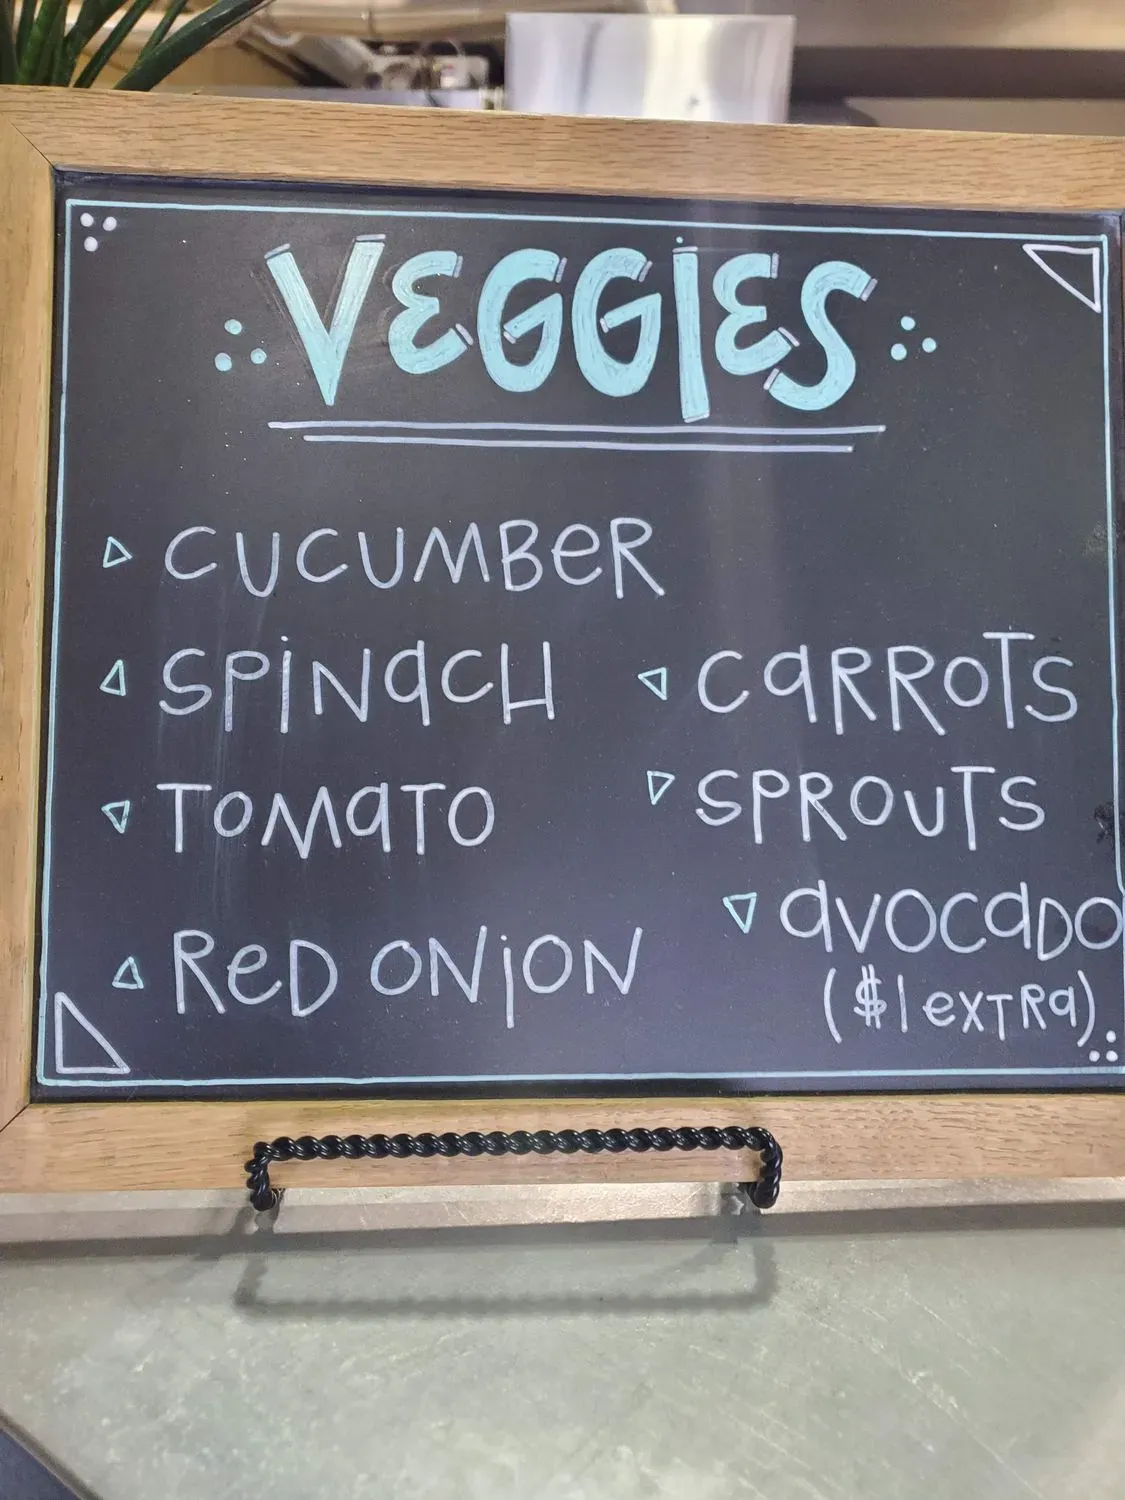 VEGGIES
CUCUMBeR
SPiNaCH
TOMaTO
ReD ONiON
CaRROTS
SPROUTS
avocaDO
($1 exTRa)